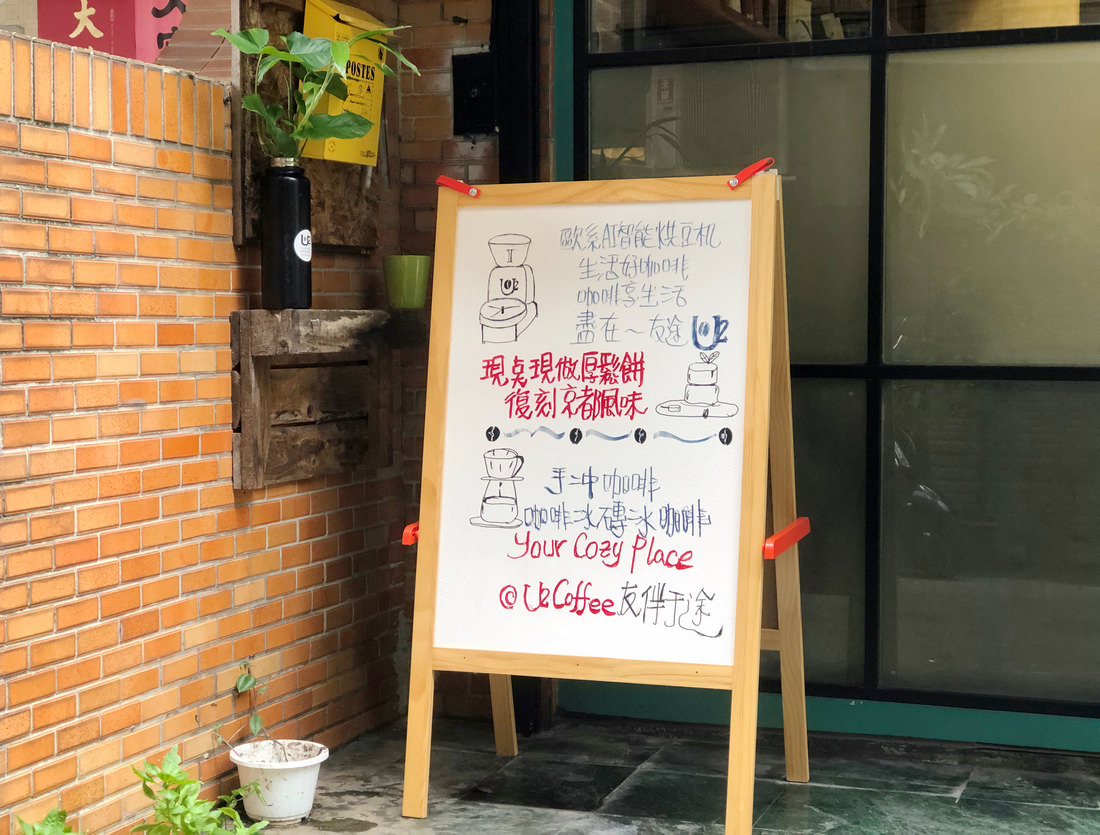 大
POSTES
U2
歐系AI智能烘豆机
U2
生活好咖啡
咖啡享生活
盡在～友途 U2
現桌現做厚鬆餅
復刻京都風味
手冲咖啡
咖啡冰磚冰咖啡
Your Cozy Place
@ U2 Coffee 友伴于途